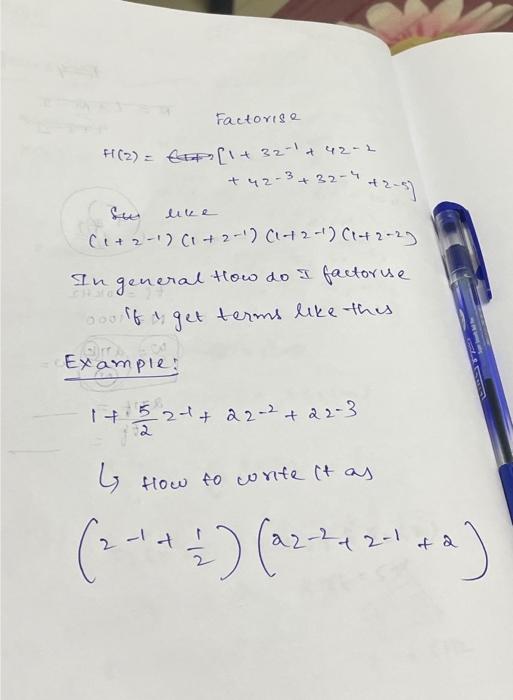 Factorise
H(z) = [1 + 3z⁻¹ + 4z-2
+ 4z-3 + 3z-4 + z-5]
like
(1 + z-1) (1 + z-1) (1+z-1) (1+z-2)
In general How do I factorise
if I get terms like this
Example:
1 + 5/2 z-1 + 2z-2 + 2z-3
↳ How to write it as
(z-1 + 1/2) (2z-2 + z-1 + 2)